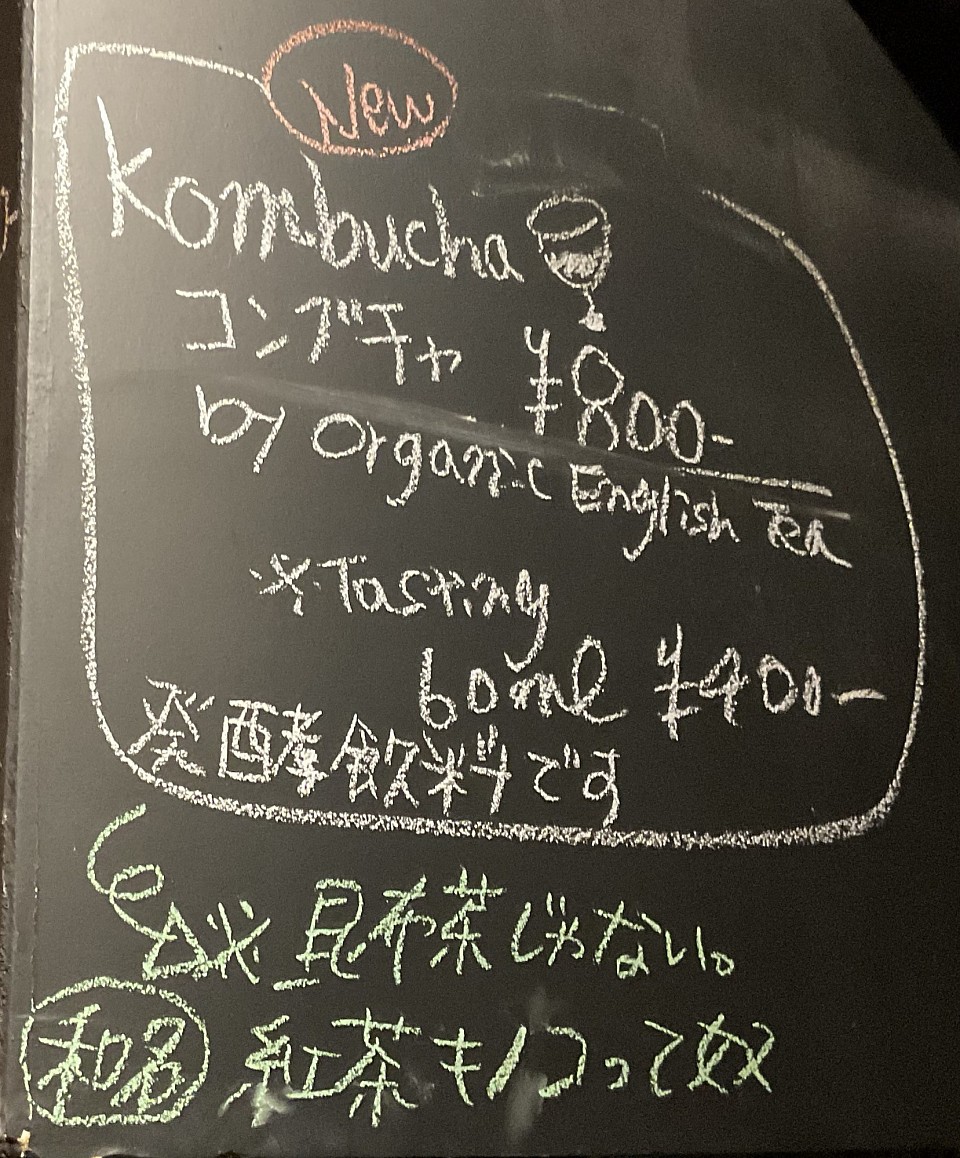 New
Kombucha
コンブチャ ¥800-
by Organic English Tea
※Tasting
60ml ¥400-
発酵飲料です
※昆布茶じゃない。
和名 紅茶キノコって奴